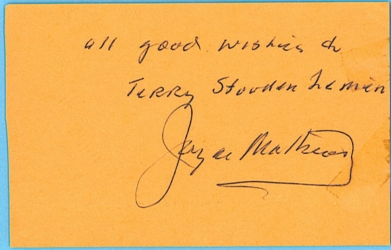 all good wishes to
Terry Stoudenhamin
Joyce Mathews